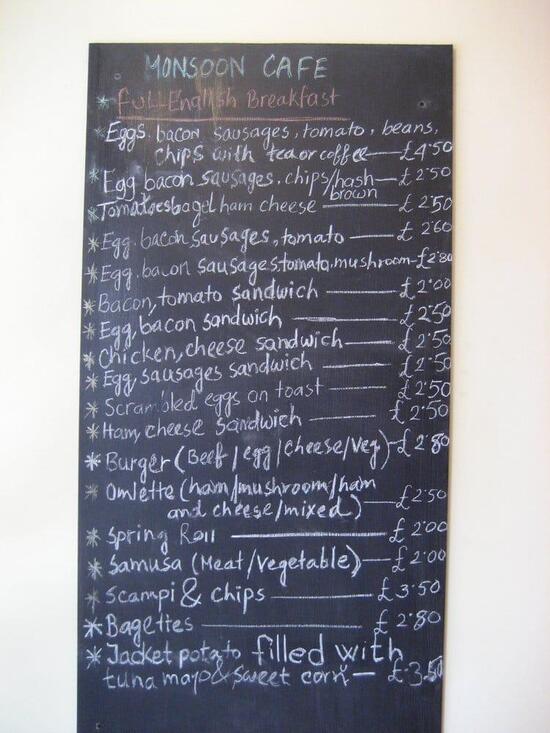 MONSOON CAFE
* Full English Breakfast
* Eggs, bacon, sausages, tomato, beans,
chips with tea or coffee — £4.50
* Egg bacon sausages, chips/hash brown — £2.50
* Tomatoes bagel ham cheese — £2.50
* Egg, bacon sausages, tomato — £2.60
* Egg, bacon sausages tomato, mushroom — £2.80
* Bacon, tomato sandwich — £2.00
* Egg, bacon sandwich — £2.50
* Chicken, cheese sandwich — £2.50
* Egg, sausages sandwich — £2.50
* Scrambled eggs on toast — £2.50
* Ham, cheese sandwich — £2.50
* Burger (Beef/egg/cheese/veg) — £2.80
* Omlette (ham/mushroom/ham
and cheese/mixed) — £2.50
* Spring Roll — £2.00
* Samusa (Meat/vegetable) — £2.00
* Scampi & chips — £3.50
* Bagettes — £2.80
* Jacket potato filled with
tuna mayo & sweet corn — £3.50